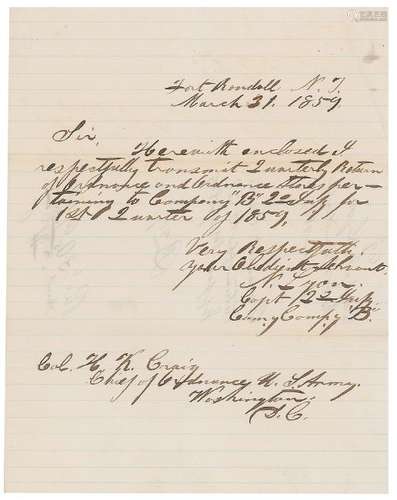 Fort Randall N. T.
March 31. 1859
Sir,
Herewith enclosed I
respectfully transmit Quarterly Return
of Ordnance and Ordnance Stores per-
taining to Company "B" 2d Inf for
1st Quarter of 1859,
Very Respectfully
your Obedient Servant
N. Lyon.
Capt 2d Inf.
Comg Compy "B".
Col. H. K. Craig
Chief of Ordnance U. S. Army.
Washington.
D. C.